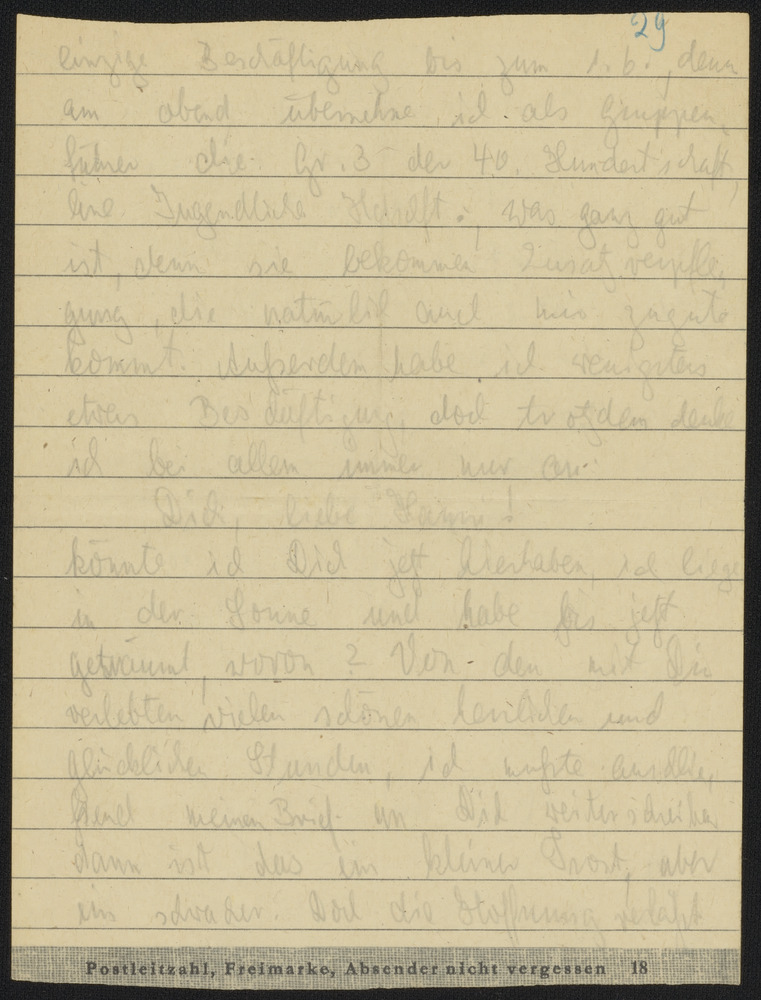 29
einzige Beschäftigung bis zum 1.6., denn
am abend übernehme ich als Gruppen
führer die Gr. 3 der 40. Hundertschaft,
eine Jugendliche was ganz gut
ist, denn sie bekommen Zusatzverpfle,
gung, die natürlich auch mir zugute
kommt. Außerdem habe ich wenigstens
etwas Beschäftigung, doch trotzdem denke
ich bei allem immer nur an.
Dich, liebe Hanni!
könnte ich Dich jetzt hierhaben, ich liege
in der Sonne und habe bis jetzt
geträumt, wovon? Von den mit Dir
verlebten vielen schönen herrlichen und
glücklichen Stunden, ich mußte anschlie,
ßend meinen Brief an Dich weiterschreiben
dann ist das ein kleiner Trost, aber
ein schwacher. Doch die Hoffnung verläßt
Postleitzahl, Freimarke, Absender nicht vergessen 18